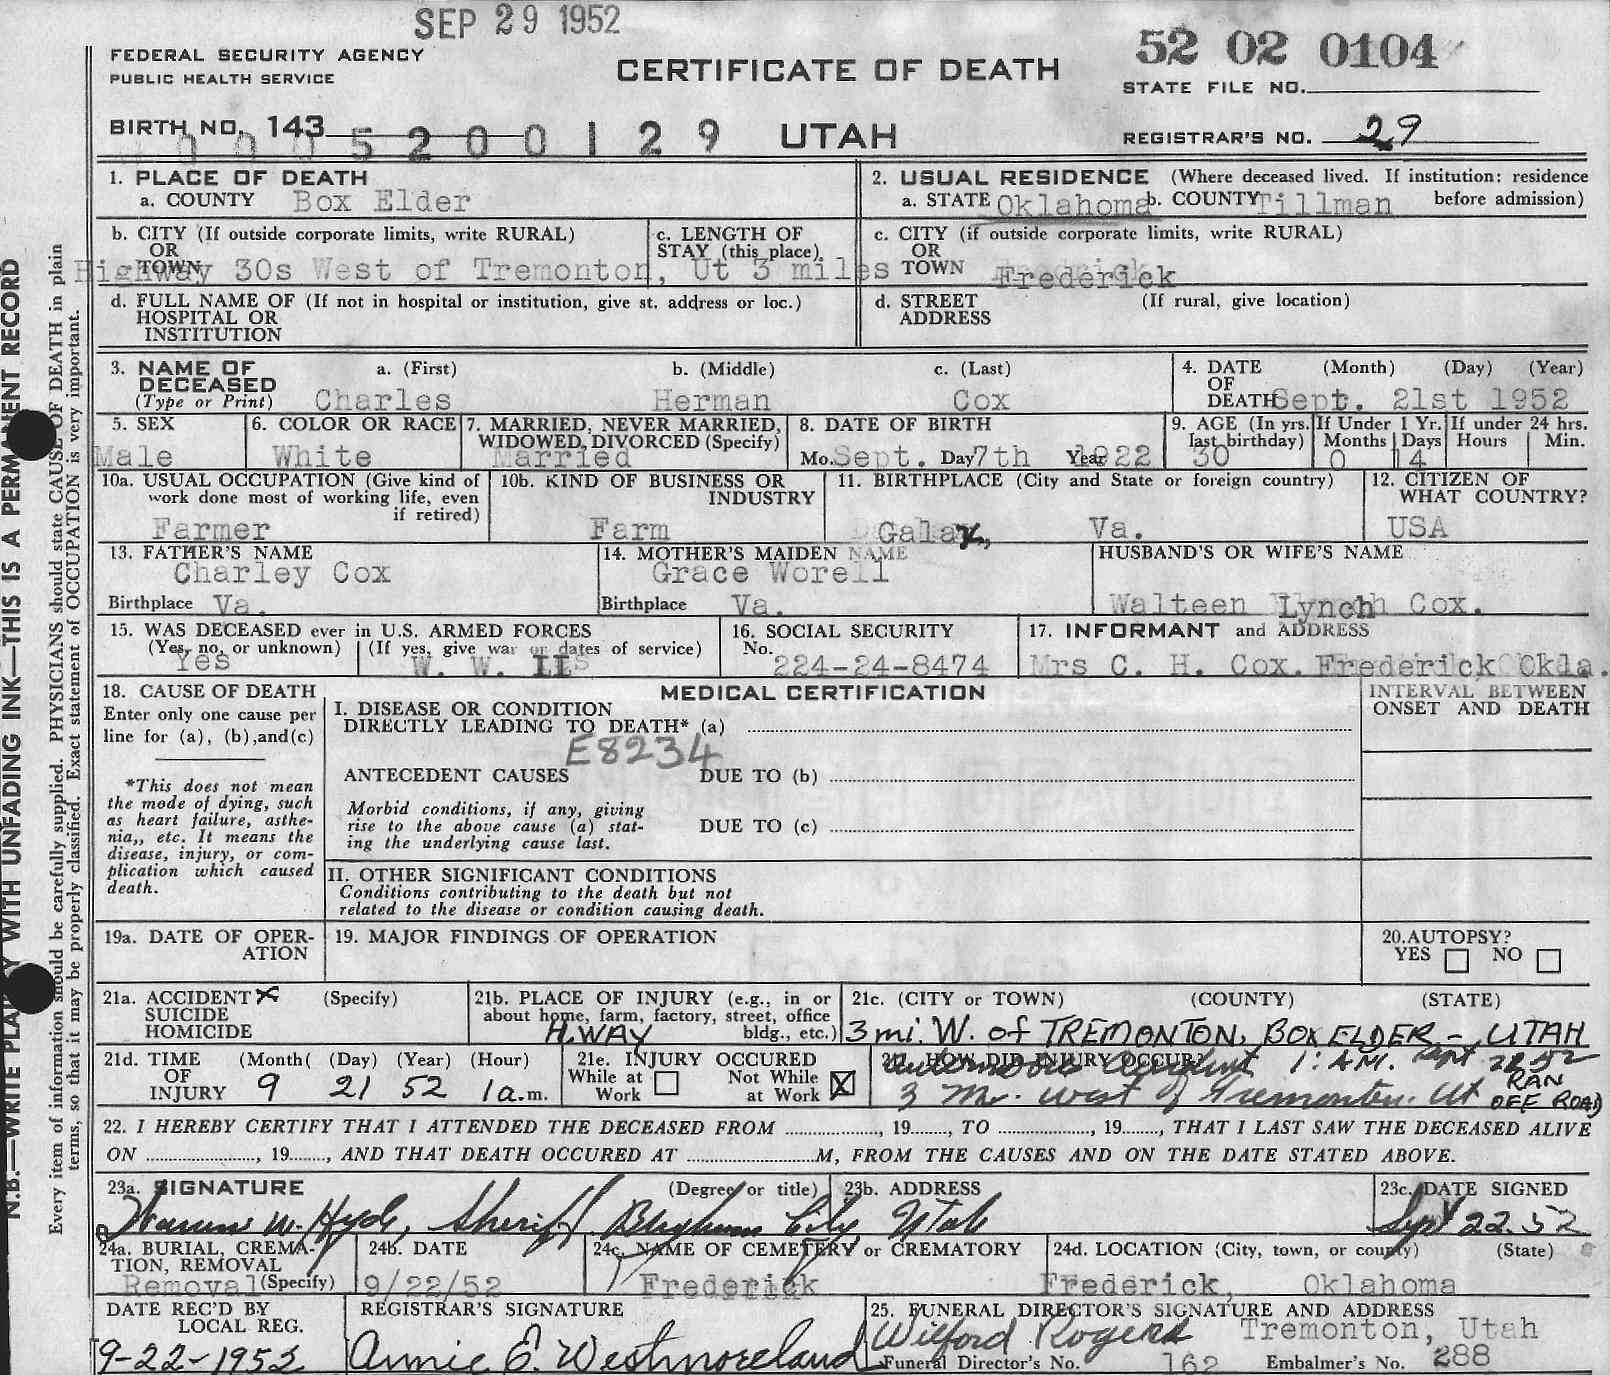 SEP 29 1952
FEDERAL SECURITY AGENCY
PUBLIC HEALTH SERVICE
CERTIFICATE OF DEATH
52 02 0104
STATE FILE NO.
BIRTH NO. 143
0005200129
UTAH
REGISTRAR'S NO. 29
1. PLACE OF DEATH
a. COUNTY Box Elder
2. USUAL RESIDENCE (Where deceased lived. If institution: residence before admission)
a. STATE Oklahoma b. COUNTY Tillman
b. CITY (If outside corporate limits, write RURAL)
OR
TOWN
Highway 30s West of Tremonton, Ut 3 miles
c. LENGTH OF
STAY (this place)
c. CITY (if outside corporate limits, write RURAL)
OR
TOWN Frederick
d. FULL NAME OF (If not in hospital or institution, give st. address or loc.)
HOSPITAL OR
INSTITUTION
d. STREET (If rural, give location)
ADDRESS
3. NAME OF
DECEASED
(Type or Print)
a. (First) b. (Middle) c. (Last)
Charles Herman Cox
4. DATE (Month) (Day) (Year)
OF
DEATH Sept. 21st 1952
5. SEX
Male
6. COLOR OR RACE
White
7. MARRIED, NEVER MARRIED,
WIDOWED, DIVORCED (Specify)
Married
8. DATE OF BIRTH
Mo. Sept. Day 7th Year 1922
9. AGE (In yrs. last birthday)
30
If Under 1 Yr.
Months Days
0 14
If under 24 hrs.
Hours Min.
10a. USUAL OCCUPATION (Give kind of
work done most of working life, even
if retired)
Farmer
10b. KIND OF BUSINESS OR
INDUSTRY
Farm
11. BIRTHPLACE (City and State or foreign country)
Galax, Va.
12. CITIZEN OF
WHAT COUNTRY?
USA
13. FATHER'S NAME
Charley Cox
Birthplace Va.
14. MOTHER'S MAIDEN NAME
Grace Worell
Birthplace Va.
HUSBAND'S OR WIFE'S NAME
Walteen Lynch Cox.
15. WAS DECEASED ever in U.S. ARMED FORCES
(Yes, no, or unknown) (If yes, give war or dates of service)
Yes W. W. II
16. SOCIAL SECURITY
No.
224-24-8474
17. INFORMANT and ADDRESS
Mrs C. H. Cox. Frederick Okla.
18. CAUSE OF DEATH
Enter only one cause per
line for (a), (b), and (c)
*This does not mean
the mode of dying, such
as heart failure, asthe-
nia,, etc. It means the
disease, injury, or com-
plication which caused
death.
MEDICAL CERTIFICATION
I. DISEASE OR CONDITION
DIRECTLY LEADING TO DEATH* (a)
E8234
ANTECEDENT CAUSES DUE TO (b)
Morbid conditions, if any, giving
rise to the above cause (a) stat-
ing the underlying cause last.
DUE TO (c)
INTERVAL BETWEEN
ONSET AND DEATH
II. OTHER SIGNIFICANT CONDITIONS
Conditions contributing to the death but not
related to the disease or condition causing death.
19a. DATE OF OPER-
ATION
19. MAJOR FINDINGS OF OPERATION
20. AUTOPSY?
YES NO
21a. ACCIDENT X (Specify)
SUICIDE
HOMICIDE
21b. PLACE OF INJURY (e.g., in or
about home, farm, factory, street, office
bldg., etc.)
H.WAY
21c. (CITY or TOWN) (COUNTY) (STATE)
3 mi. W. of TREMONTON, BOX ELDER - UTAH
21d. TIME (Month( (Day) (Year) (Hour)
OF
INJURY 9 21 52 1 a.m.
21e. INJURY OCCURED
While at Work Not While at Work X
HOW DID INJURY OCCUR?
Automobile Accident 1: A.M. Sept 52
3 Mi. West of Tremonton. Ut RAN
OFF ROAD
22. I HEREBY CERTIFY THAT I ATTENDED THE DECEASED FROM , 19 , TO , 19 , THAT I LAST SAW THE DECEASED ALIVE
ON , 19 , AND THAT DEATH OCCURED AT M, FROM THE CAUSES AND ON THE DATE STATED ABOVE.
23a. SIGNATURE (Degree or title)
Warren W. Hyde, Sheriff
23b. ADDRESS
Brigham City Utah
23c. DATE SIGNED
Sept 22. 52
24a. BURIAL, CREMA-
TION, REMOVAL
Removal (Specify)
24b. DATE
9/22/52
24c. NAME OF CEMETERY or CREMATORY
Frederick
24d. LOCATION (City, town, or county) (State)
Frederick, Oklahoma
DATE REC'D BY
LOCAL REG.
9-22-1952
REGISTRAR'S SIGNATURE
Annie E. Westmoreland
25. FUNERAL DIRECTOR'S SIGNATURE AND ADDRESS
Wilford Rogers Tremonton, Utah
Funeral Director's No. 162 Embalmer's No. 288
N.B.—WRITE PLAINLY WITH UNFADING INK—THIS IS A PERMANENT RECORD
Every item of information should be carefully supplied. PHYSICIANS should state CAUSE OF DEATH in plain
terms, so that it may be properly classified. Exact statement of OCCUPATION is very important.